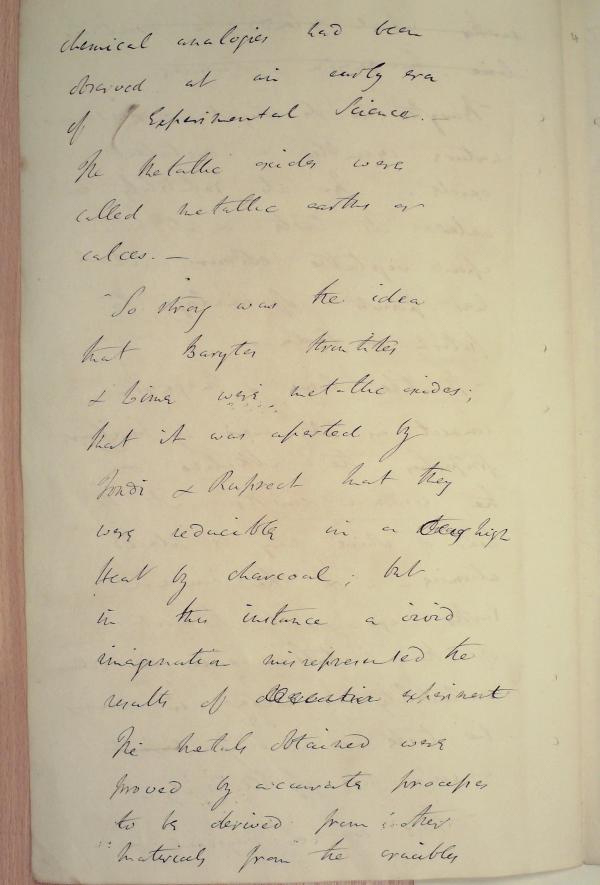 chemical analogies had been
observed at an early era
of Experimental Science.
The Metallic oxides were
called metallic earths or
calces. —
So strong was the idea
that Barytes Strontites
& Lime were metallic oxides;
that it was asserted by
Tondi & Ruprecht that they
were reducible in a high
Heat by charcoal; but
in this instance a vivid
imagination misrepresented the
results of experiment
The metals obtained were
proved by accurate processes
to be derived from other
materials from the crucibles